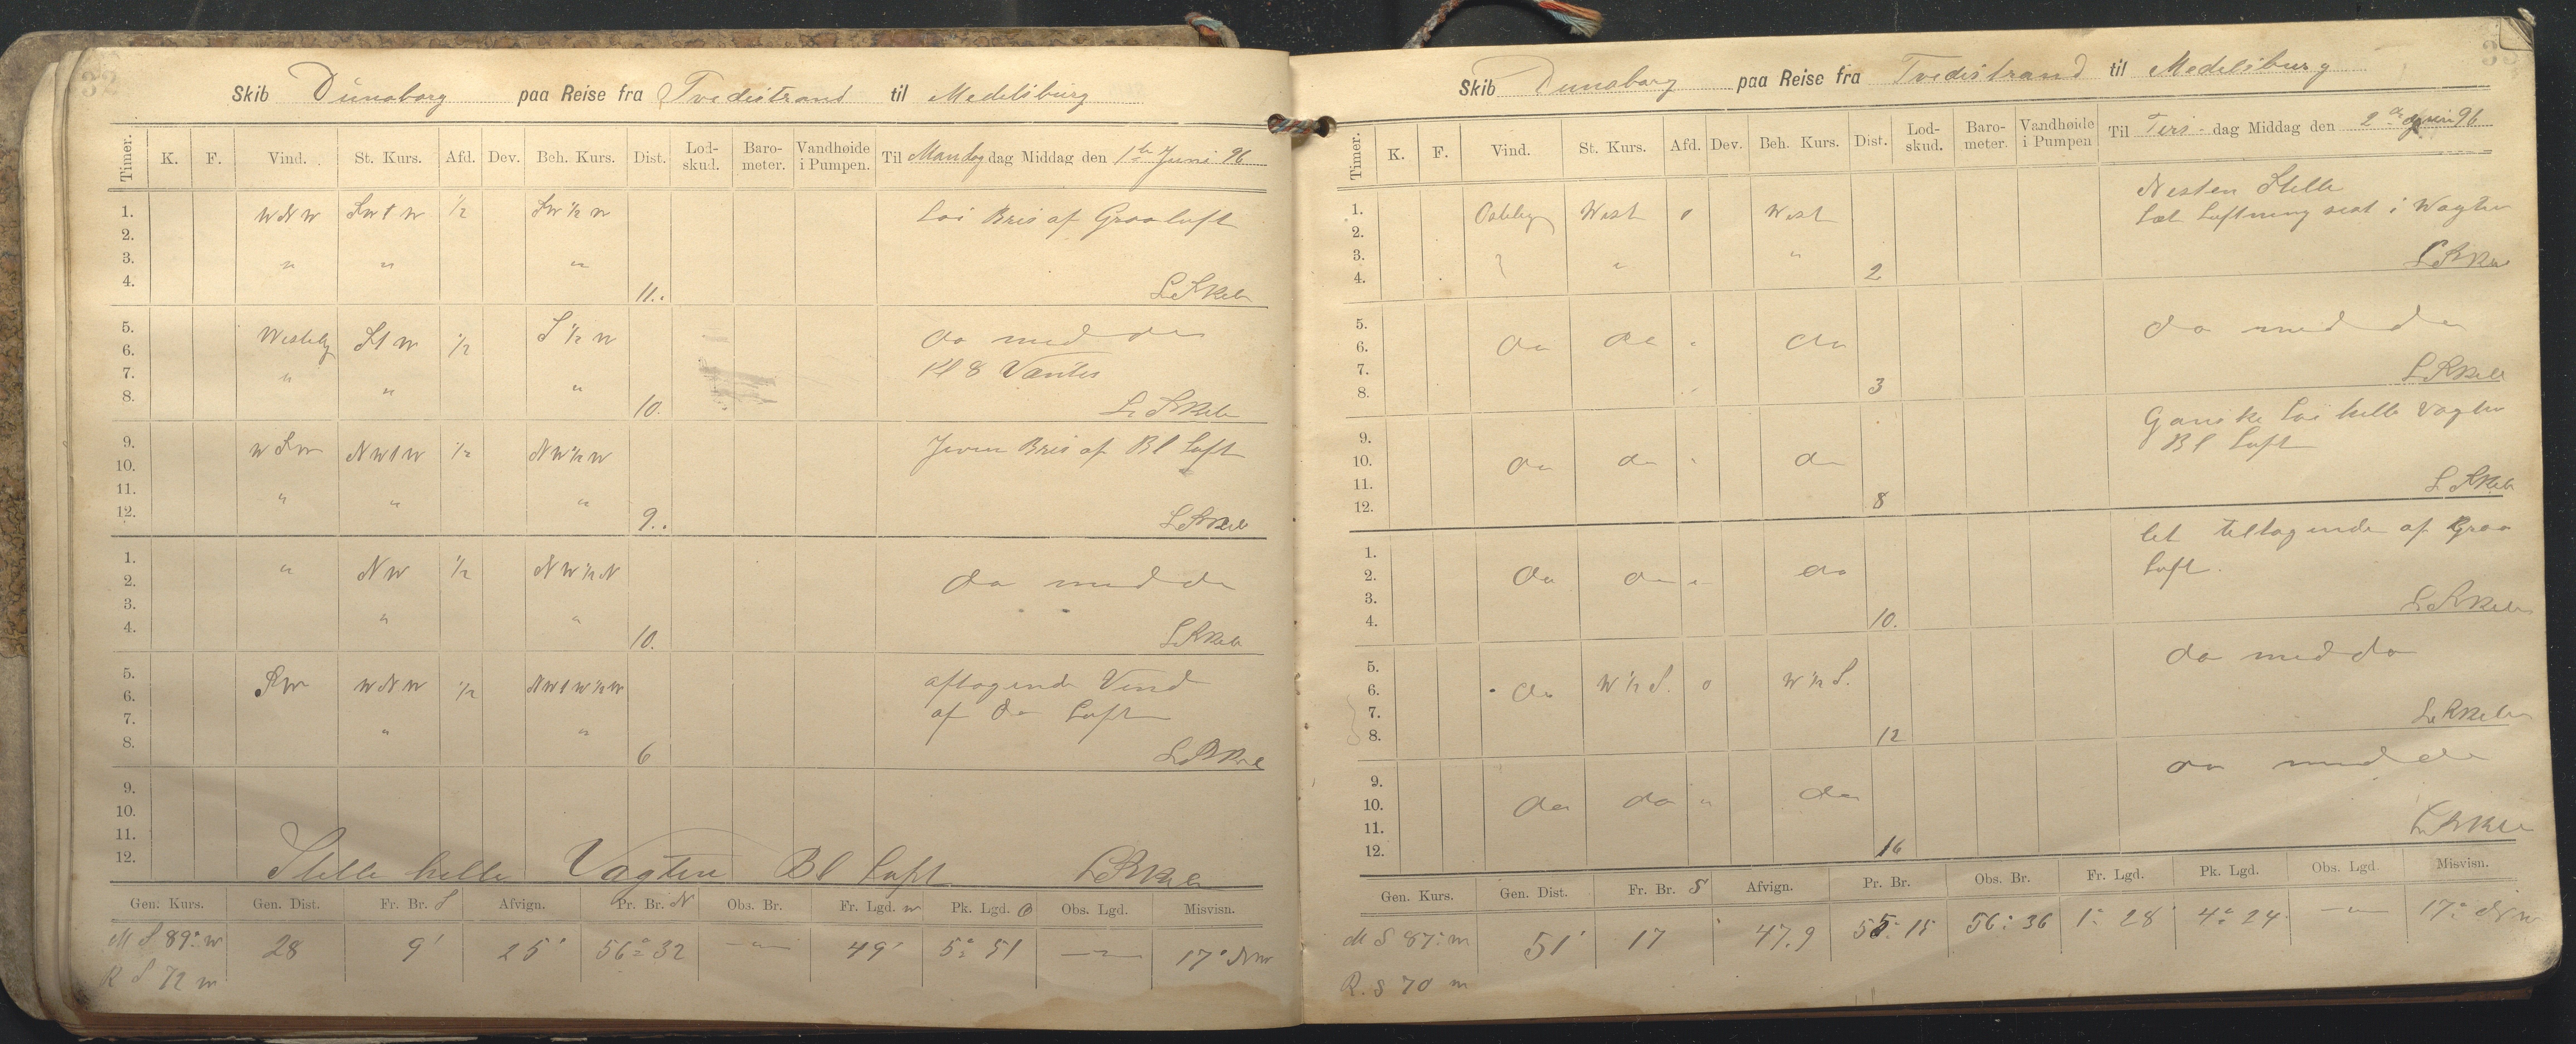 32
Skib Dünaborg paa Reise fra Tvedestrand til Medelsburg
Timer. K. F. Vind. St. Kurs. Afd. Dev. Beh. Kurs. Dist. Lod-skud. Baro-meter. Vandhøide i Pumpen. Til Mandag dag Middag den 1te Juni 96
1. WNW SWtW 1/2 SW 1/2 W Loi Bris af Graaluft
2.
3. " " "
4. 11. L. SKeln
5. Westely StW 1/2 S 1/2 W do med do
6.
7. " " " Kl 8 Vendte
8. 10.
9. WSW NWtW 1/2 NW 1/2 W Jevn Bris af Bl Luft
10.
11. " " "
12. 9.
1. " NW 1/2 NW 1/2 N do med do
2.
3. " "
4. 10.
5. SW WNW 1/2 NWtW 1/2 W aftagende Vind
6. af do Luft
7. " "
8. 6
9.
10.
11.
12. Stille helle Vagten Bl Luft
Gen. Kurs. Gen. Dist. Fr. Br. S Afvign. Pr. Br. N Obs. Br. Fr. Lgd. W Pk. Lgd. O Obs. Lgd. Misvisn.
M S 89° W 28 9' 25' 56° 32 — " — 49' 5° 51 — " — 17° NW
R S 72 W
33
Skib Dunaborg paa Reise fra Tvedestrand til Medelsburg
Timer. K. F. Vind. St. Kurs. Afd. Dev. Beh. Kurs. Dist. Lod-skud. Baro-meter. Vandhøide i Pumpen Til Tirs-dag Middag den 2de Juni 96
1. Ostely West 0 West Nesten Stille
2. Let Luftning sist i Vagten
3. " "
4. 2
5. do do " do do med do
6.
7.
8. 3
9. do do " do Ganske Loi helle Vagten
10. Bl Luft
11.
12. 8
1. do do " do let tiltagende af Graa
2. Luft.
3.
4. 10.
5. do W 1/2 S. 0 W 1/2 S. do med do
6.
7.
8. 12
9. do do " do do med do
10.
11.
12. 16
Gen. Kurs. Gen. Dist. Fr. Br. S Afvign. Pr. Br. Obs. Br. Fr. Lgd. Pk. Lgd. Obs. Lgd. Misvisn.
M S 87° W 51' 17 47.9 55° 15 56° 36 1° 28' 4° 24 — " — 17° NW
R. S 70 W